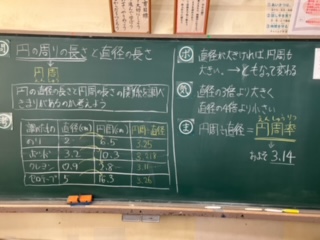 円の周りの長さと直径の長さ
円周
円の直径の長さと円周の長さの関係を調べ
きまりがあるのか考えよう
測ったもの 直径(cm) 円周(cm) 円周÷直径
のり 2 6.5 3.25
ボンド 3.2
クレヨン 0.9
セロテープ 5 16.3 3.26
直径が大きければ円周も
大きい。→ともなって変わる
直径の3倍より大きく
直径の4倍より小さい
ま 円周÷直径=円周率
えんしゅうりつ
およそ 3.14